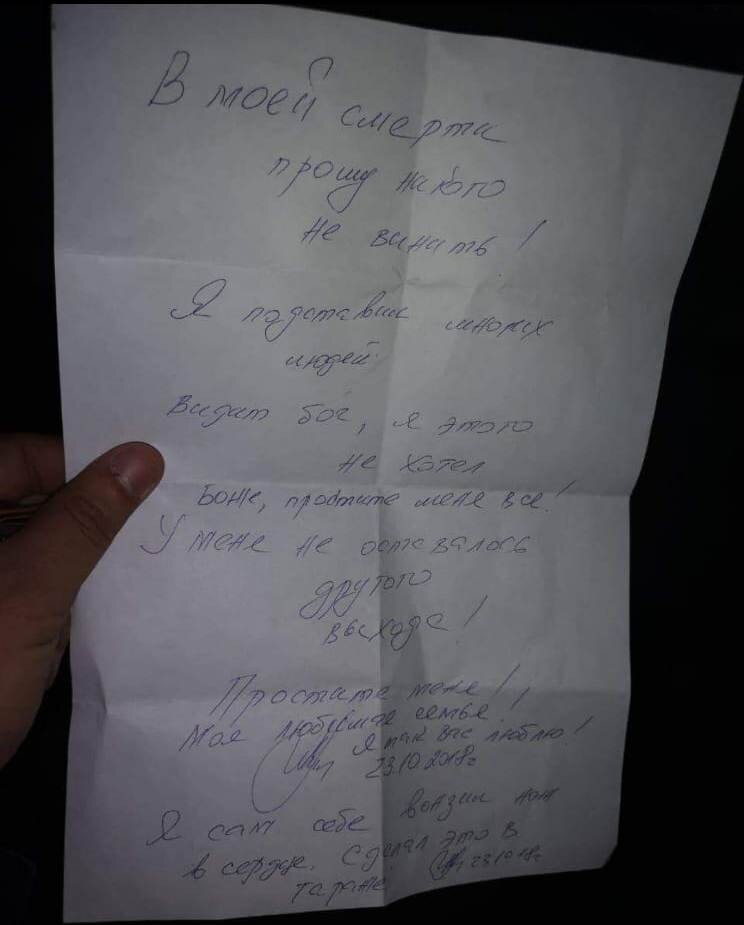 В моей смерти
прошу никого
не винить!
Я подставил многих
людей.
Видит бог, я этого
не хотел
Боже, простите меня все!
У меня не оставалось
другого
выхода!
Простите меня!
Моя любимая семья!
Я так вас люблю!
23.10.2018г
Я сам себе вонзил нож
в сердце. Сделал это в
гараже.
23.10.18г